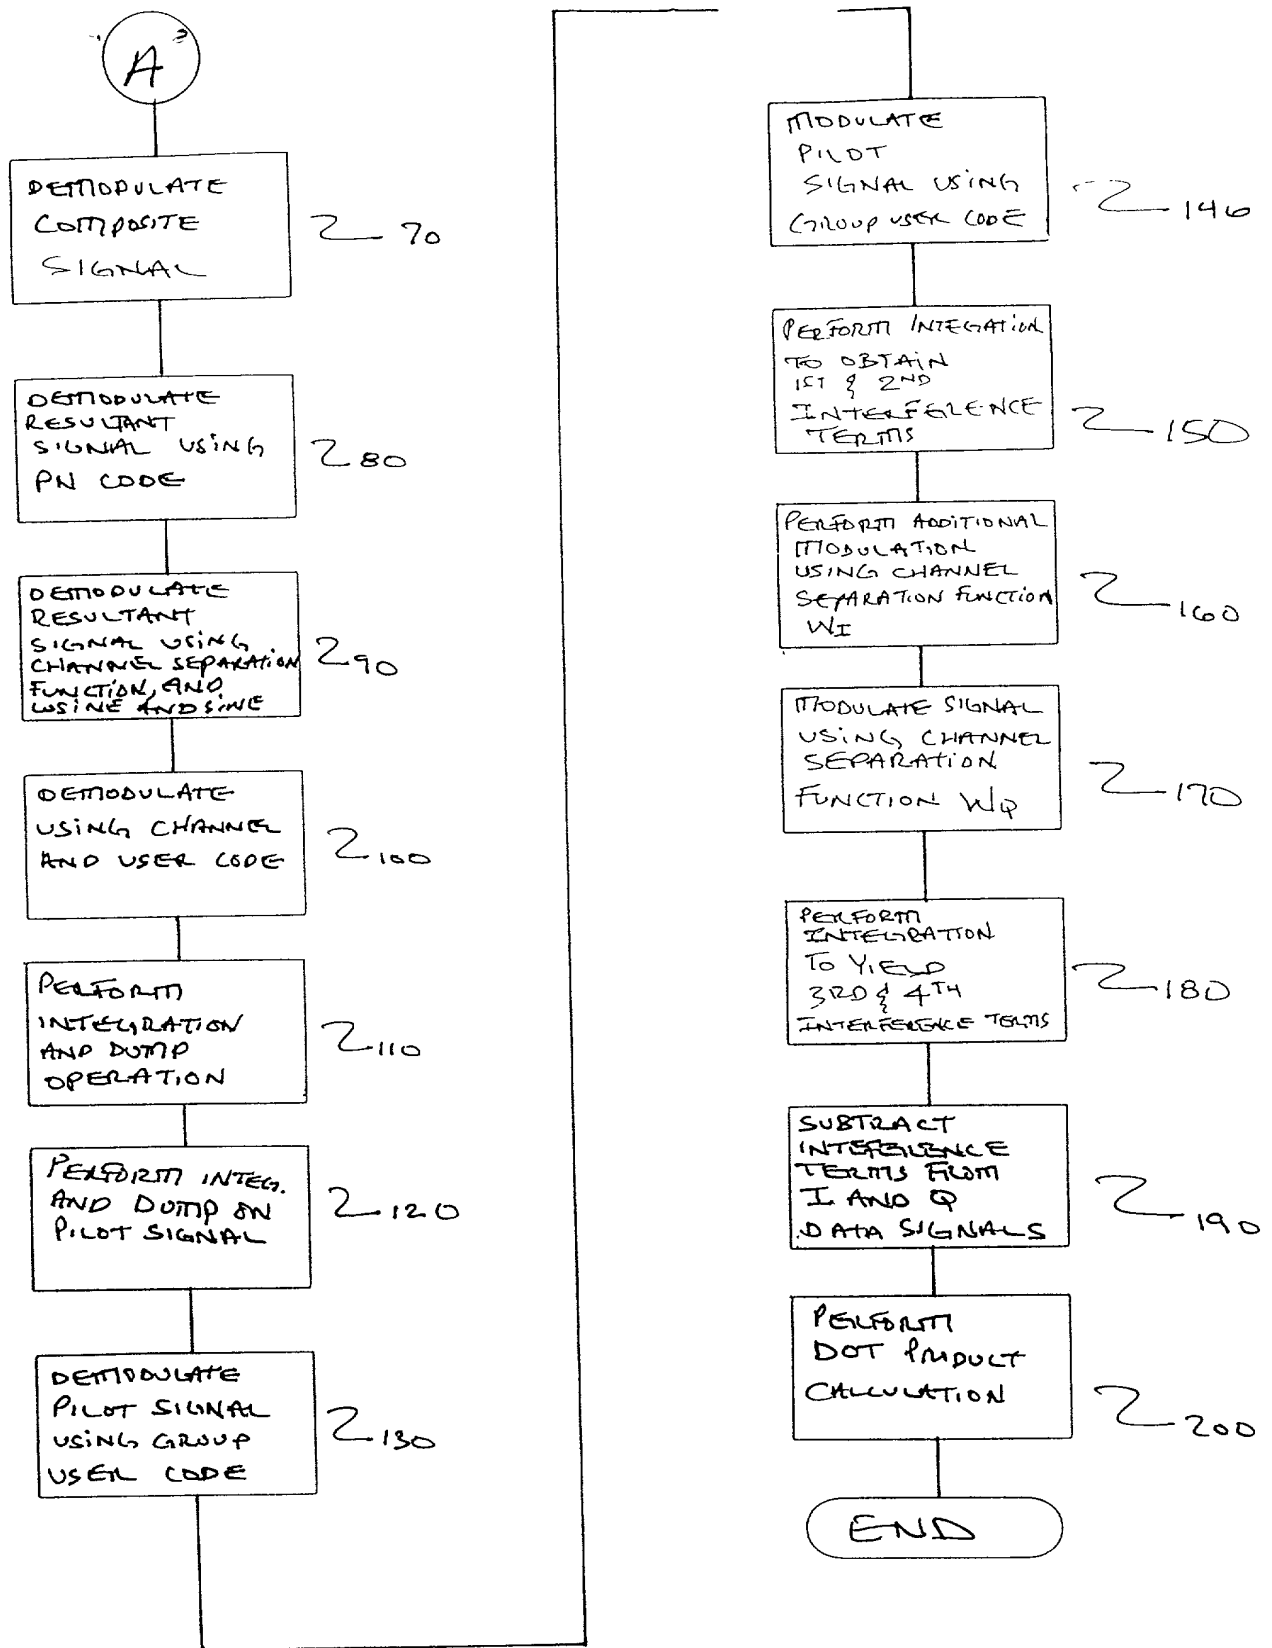 A
DEMODULATE
COMPOSITE
SIGNAL
70
DEMODULATE
RESULTANT
SIGNAL USING
PN CODE
80
DEMODULATE
RESULTANT
SIGNAL USING
CHANNEL SEPARATION
FUNCTION, AND
COSINE AND SINE
90
DEMODULATE
USING CHANNEL
AND USER CODE
100
PERFORM
INTEGRATION
AND DUMP
OPERATION
110
PERFORM INTEG.
AND DUMP ON
PILOT SIGNAL
120
DEMODULATE
PILOT SIGNAL
USING GROUP
USER CODE
130
MODULATE
PILOT
SIGNAL USING
GROUP USER CODE
140
PERFORM INTEGATION
TO OBTAIN
1ST & 2ND
INTERFERENCE
TERMS
150
PERFORM ADDITIONAL
MODULATION
USING CHANNEL
SEPARATION FUNCTION
WI
160
MODULATE SIGNAL
USING CHANNEL
SEPARATION
FUNCTION WQ
170
PERFORM
INTEGRATION
TO YIELD
3RD & 4TH
INTERFERENCE TERMS
180
SUBTRACT
INTEFERENCE
TERMS FROM
I AND Q
DATA SIGNALS
190
PERFORM
DOT PRODUCT
CALCULATION
200
END